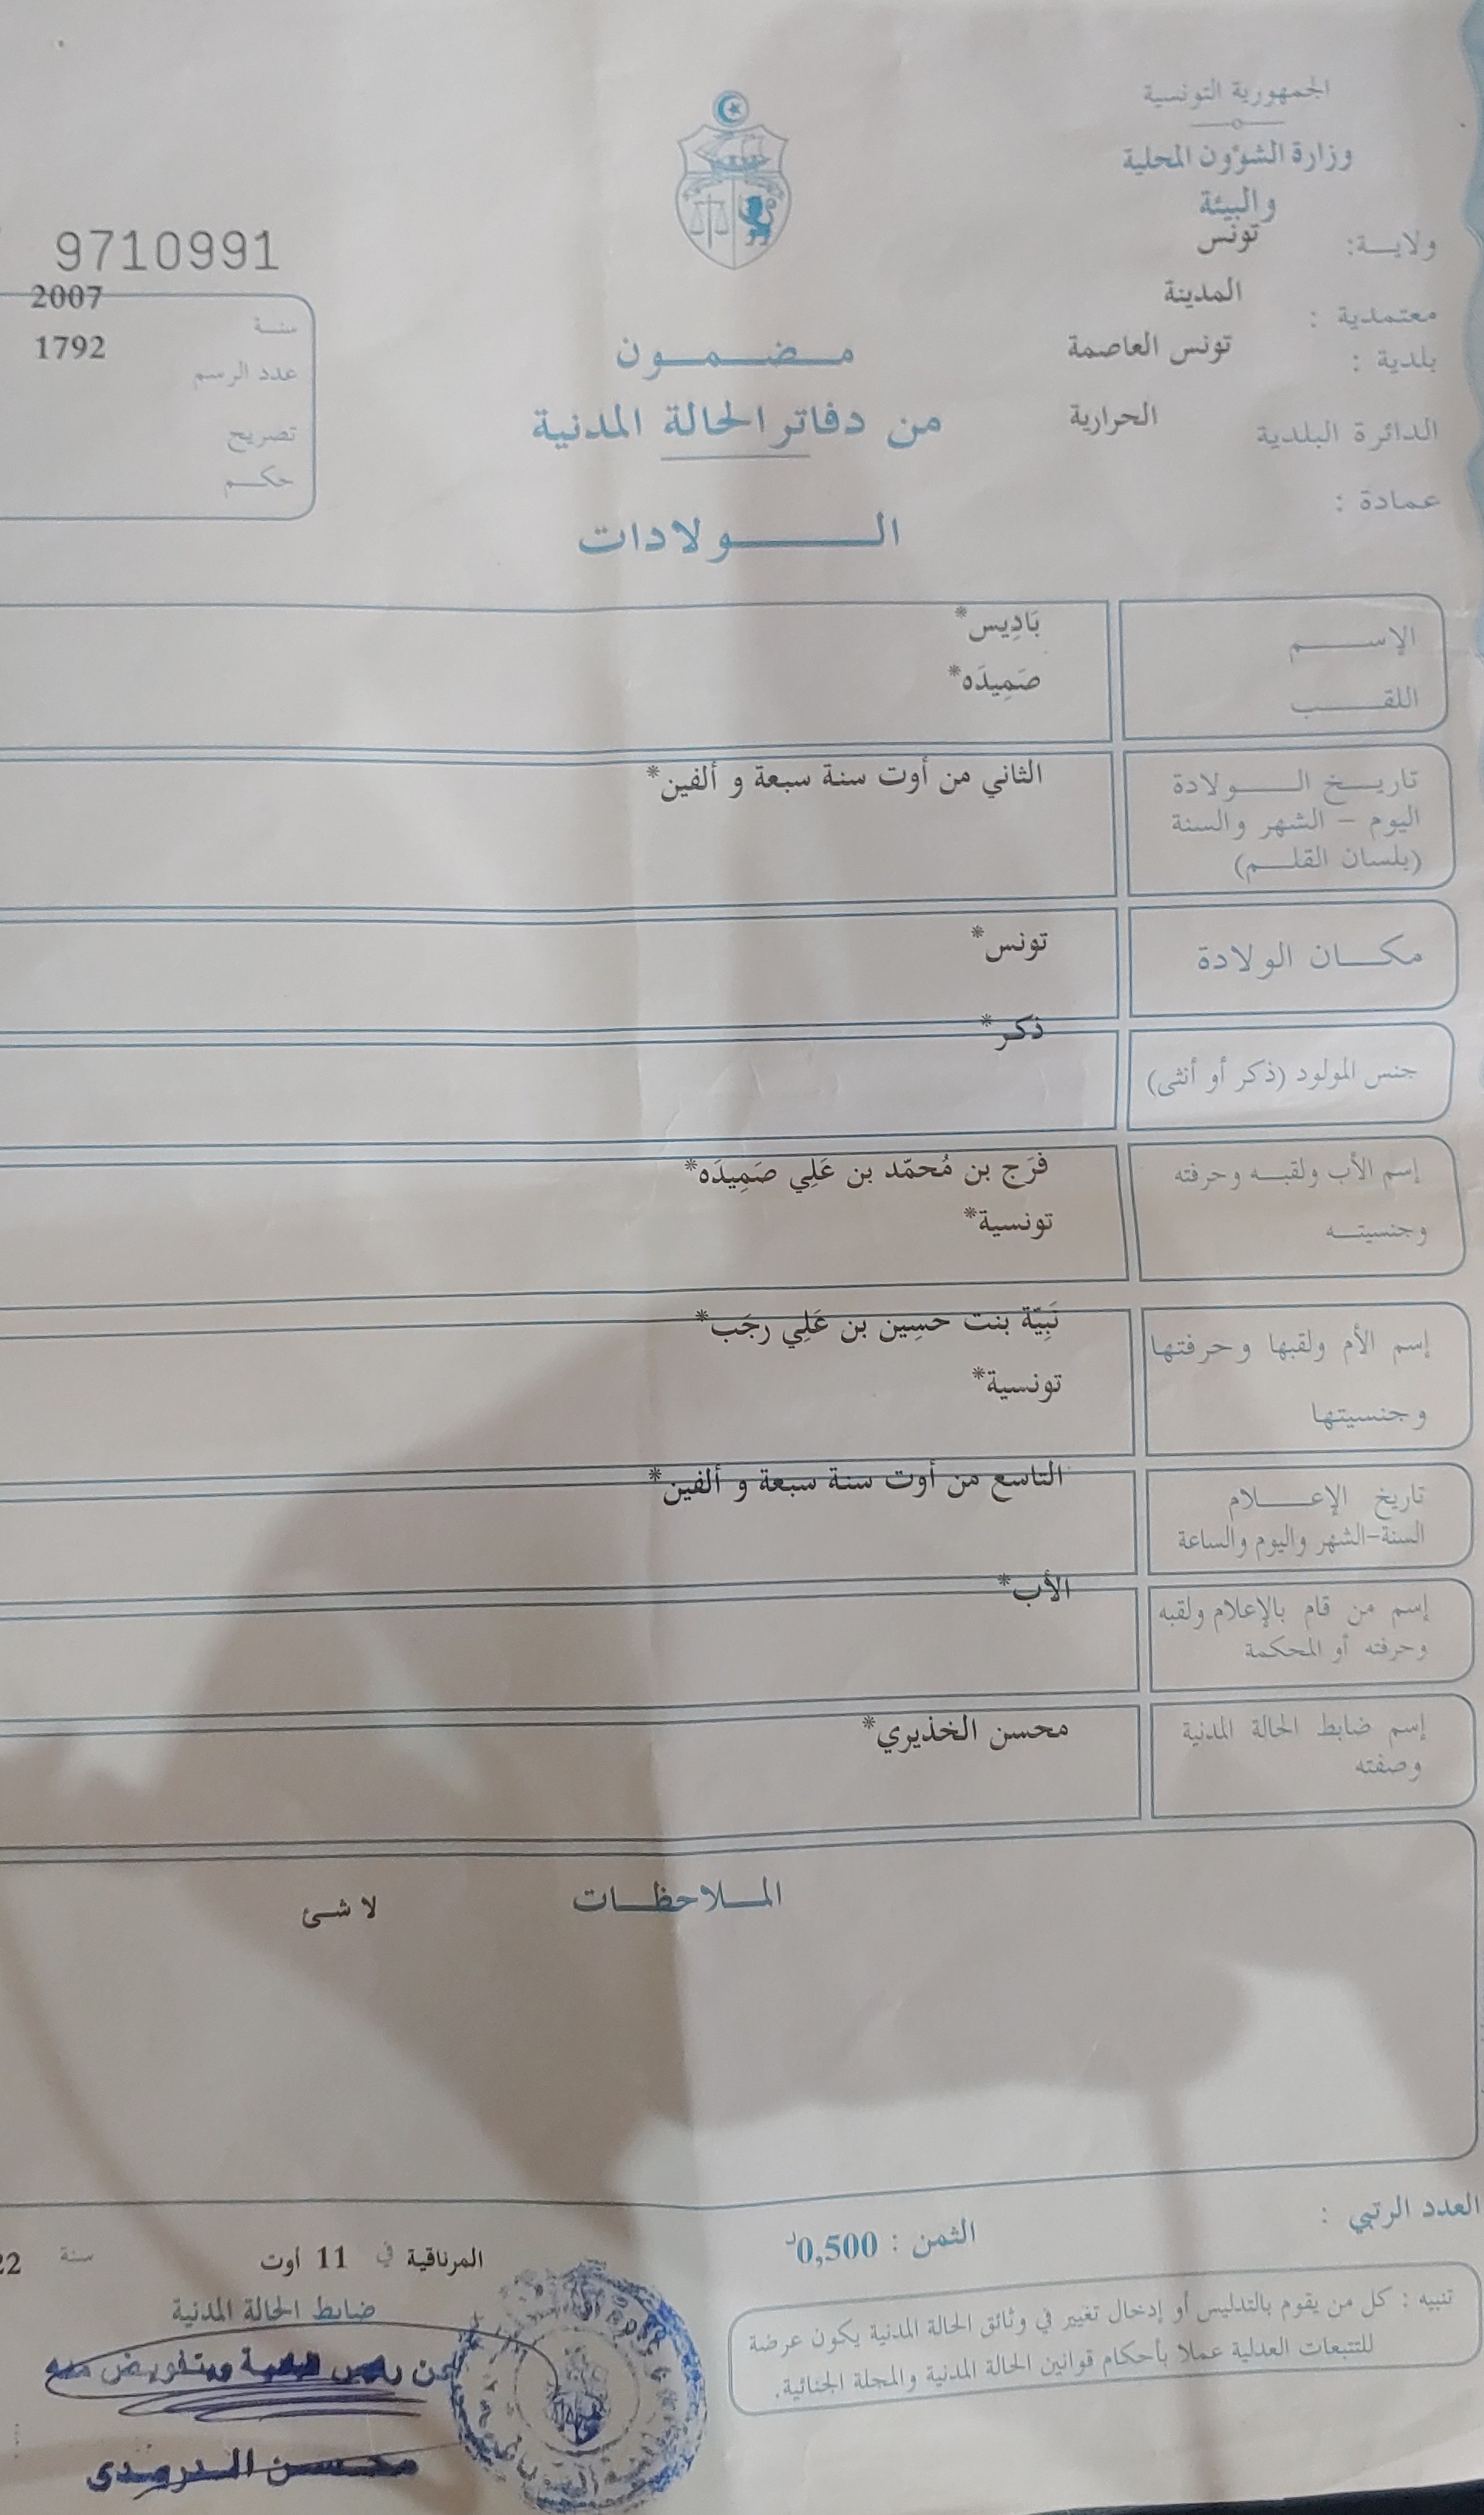 الجمهورية التونسية
وزارة الشؤون المحلية
والبيئة
ولايـــة: تونس
معتمدية : المدينة
بلدية : تونس العاصمة
الدائرة البلدية الحرارية
عمادة :
9710991
سنـــة 2007
عدد الرسم 1792
تصريح
حكـــم
مـضـمـون
من دفاتر الحالة المدنية
الـولادات
الإســـم بَادِيس*
اللقـــب صَمِيدَه*
تاريـــخ الـــولادة الثاني من أوت سنة سبعة و ألفين*
اليوم - الشهر والسنة
(بلسان القلـــم)
مكـــان الولادة تونس*
جنس المولود (ذكر أو أنثى) ذكر*
إسم الأب ولقبـــه وحرفته فَرَج بن مُحمّد بن عَلِي صَمِيدَه*
وجنسيتـــه تونسية*
إسم الأم ولقبها وحرفتها نَبِيّة بنت حسِين بن عَلِي رجَب*
وجنسيتها تونسية*
تاريخ الإعـــلام التاسع من أوت سنة سبعة و ألفين*
السنة-الشهر واليوم والساعة
إسم من قام بالإعلام ولقبه الأب*
وحرفته أو المحكمة
إسم ضابط الحالة المدنية محسن الخذيري*
وصفته
المـــلاحظـــات لا شئ
العدد الرتبي :
الثمن : 0,500د
تنبيه : كل من يقوم بالتدليس أو إدخال تغيير في وثائق الحالة المدنية يكون عرضة
للتتبعات العدلية عملا بأحكام قوانين الحالة المدنية والمجلة الجنائية.
المرناقية في 11 أوت سنة 22
ضابط الحالة المدنية
عن رئيس البلدية وبتفويض منه
محسن الدريدي